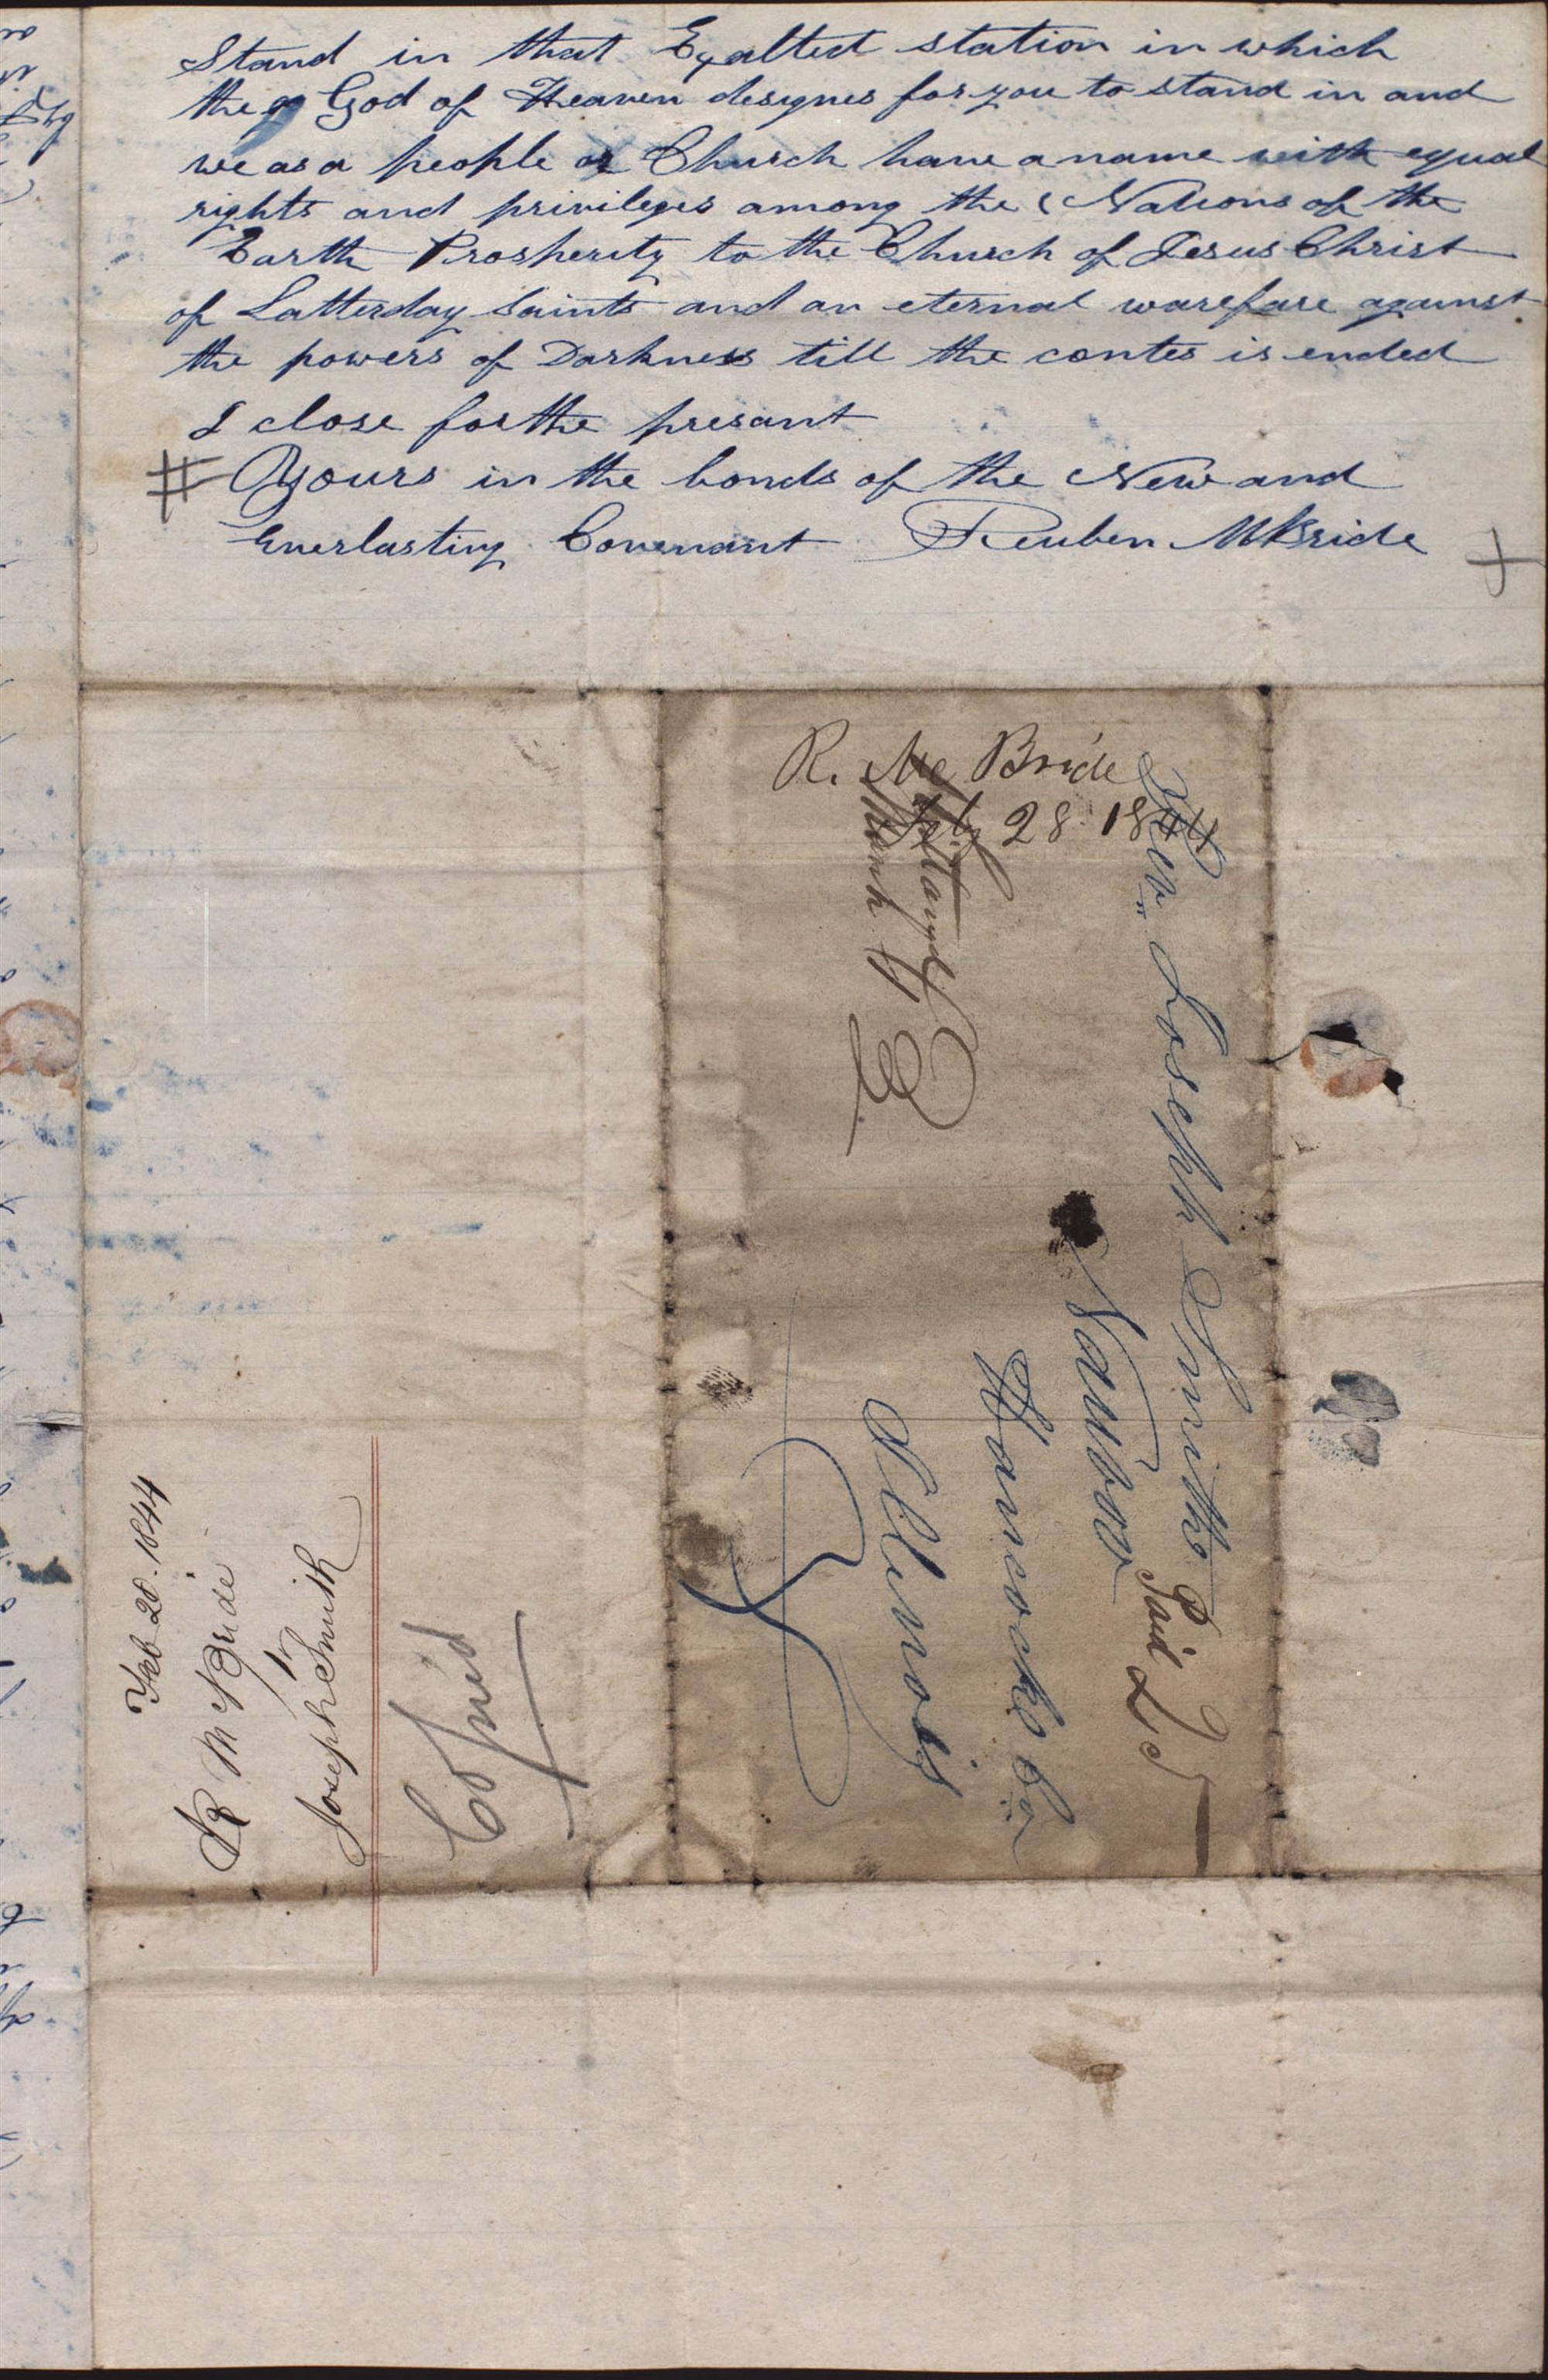 Stand in that Exalted station in which
the God of Heaven designes for you to stand in and
we as a people or Church have a name with equal
rights and privileges among the Nations of the
Earth Prosperity to the Church of Jesus Christ
of Latterday Saints and an eternal warefare against
the powers of Darkness till the contes is ended
I close for the presant
# Yours in the bonds of the New and
Everlasting Covenant Reuben McBride
R. Mc Bride
Feby 28 1844
March 4
Rev. Joseph Smith
Nauvoo
Hancock Co
Illinois
Paid 25
Feb 28. 1844
R McBride
Joseph Smith
Copied